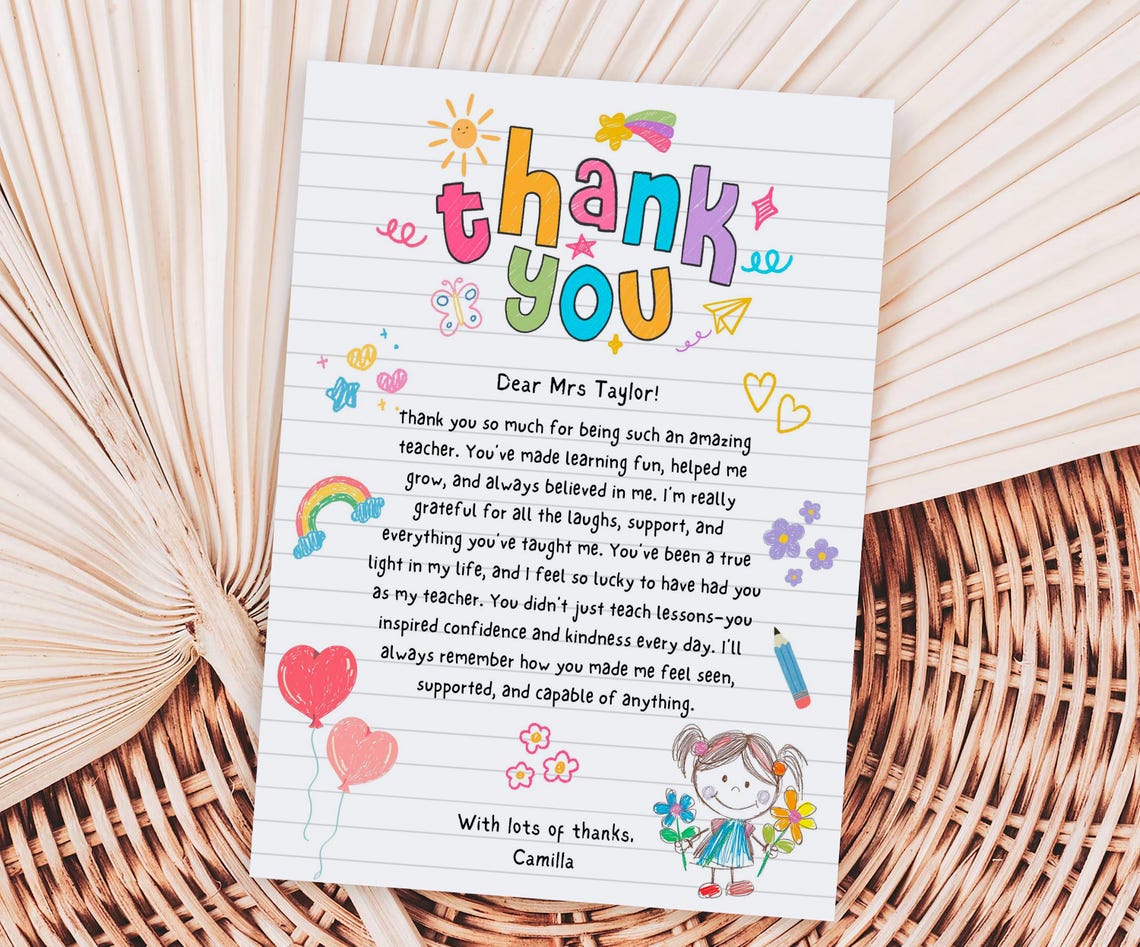 thank
you
Dear Mrs Taylor!
Thank you so much for being such an amazing
teacher. You've made learning fun, helped me
grow, and always believed in me. I'm really
grateful for all the laughs, support, and
everything you've taught me. You've been a true
light in my life, and I feel so lucky to have had you
as my teacher. You didn't just teach lessons-you
inspired confidence and kindness every day. I'll
always remember how you made me feel seen,
supported, and capable of anything.
With lots of thanks,
Camilla